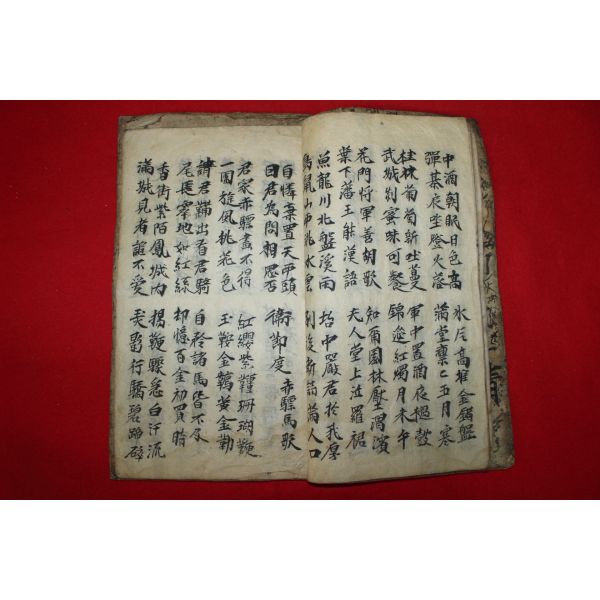 中酒朝眠日色高
彈棊夜半燈火落
氷片高堆金錯盤
滿堂凜〻五月寒
桂林葡萄新吐蔓
武城刺蜜味可餐
軍中置酒夜撾鼓
錦筵紅燭月未午
花門将軍善胡歌
葉下藩王能漢語
知爾園林壓渭濱
夫人堂上泣羅裙
魚龍川北盤溪雨
鳥鼠山西洮水雲
坮中嚴君於我厚
別後新詩滿人口
自憐棄置天西頭
因君為問相思否
衛節度 赤驃馬歌
君家赤驃畫不得
一團旋風桃花色
紅纓紫鞚珊瑚鞭
玉鞍金韉黃金勒
請君鞲出看君騎
尾長窣地如紅絲
自矜諸馬皆不及
却憶百金初買時
香街紫陌鳳城內
滿城見者誰不愛
揚鞭驟急白汗流
弄影行驕碧蹄碎